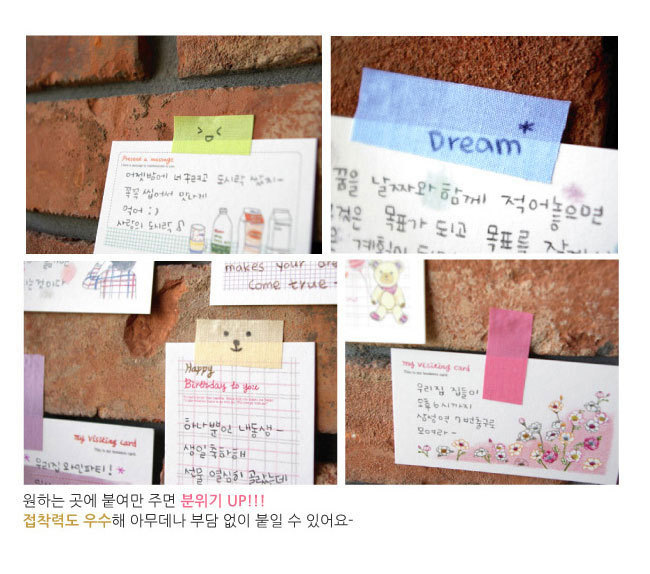 Present a message
어젯밤에 너 주려고 도시락 쌌지~
꼭꼭 씹어서 맛나게
먹어 :)
사랑의 도시락
Dream*
꿈을 날짜와 함께 적어놓으면
것은 목표가 되고 목표를
계획이
는것이다
makes your dre
come true -
Happy
Birthday to you
하나뿐인 내동생~
생일 축하해
선물 열심히 골랐는데
my visiting card
This is our business card.
우리집 와인파티!
my visiting card
This is our business card.
우리집 집들이
오후 6시까지
7번출구로
모여라~
원하는 곳에 붙여만 주면 분위기 UP!!!
접착력도 우수해 아무데나 부담 없이 붙일 수 있어요~